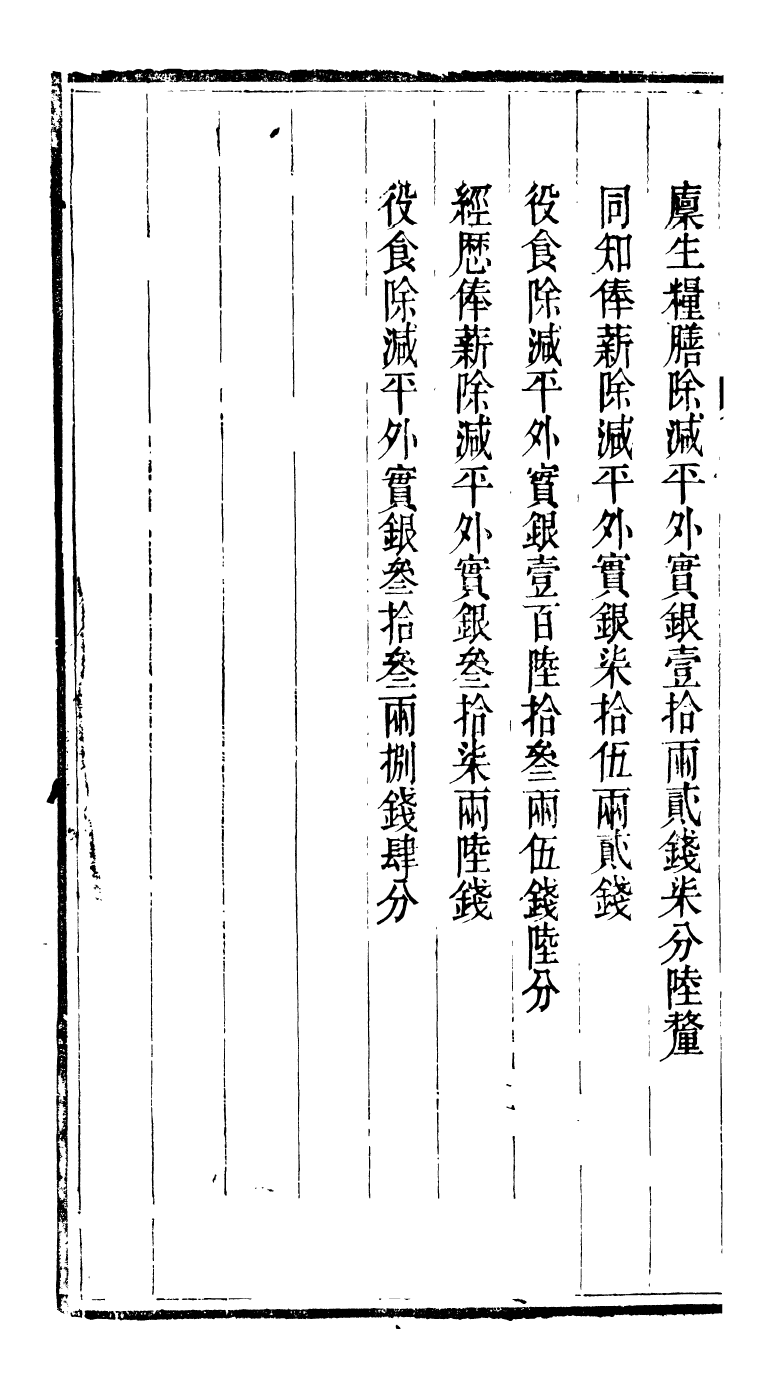 廩生糧膳除減平外實銀壹拾兩貳錢柒分陸釐
同知俸薪除減平外實銀柒拾伍兩貳錢
役食除減平外實銀壹百陸拾叄兩伍錢陸分
經歷俸薪除減平外實銀叄拾柒兩陸錢
役食除減平外實銀叄拾叄兩捌錢肆分